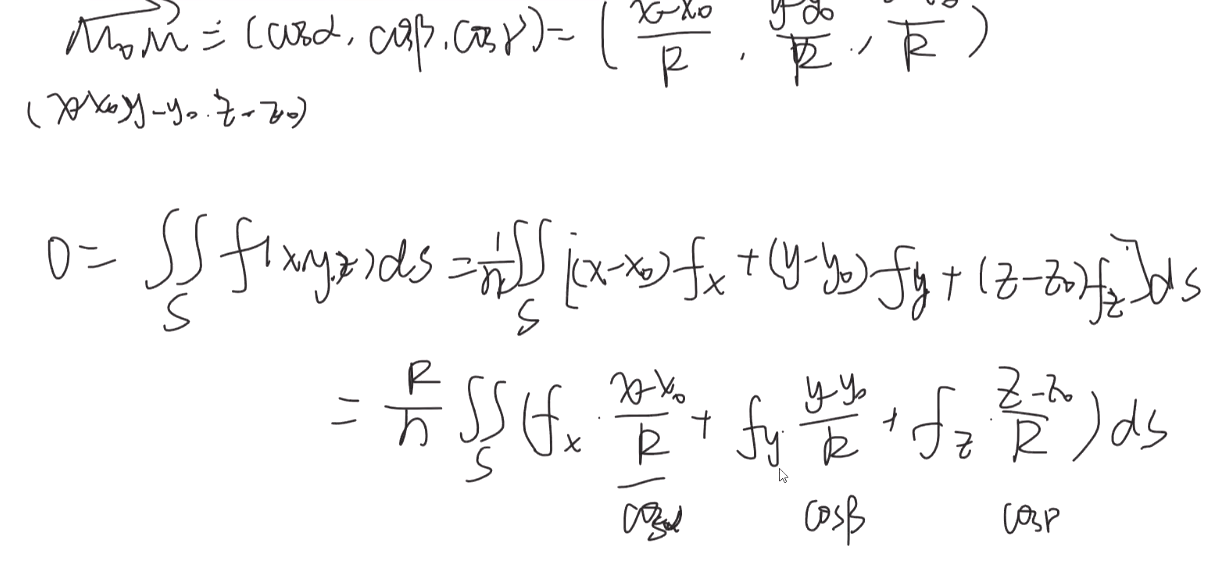 M₀M = (cosα, cosβ, cosγ) = ( (x-x₀)/R , (y-y₀)/R , /R )
(x-x₀, y-y₀, z-z₀)
0 = ∬_S f(x,y,z)ds = 1/n ∬_S [(x-x₀)f_x + (y-y₀)f_y + (z-z₀)f_z]ds
= R/n ∬_S (f_x · (x-x₀)/R + f_y (y-y₀)/R + f_z · (z-z₀)/R) ds
cosα cosβ cosγ